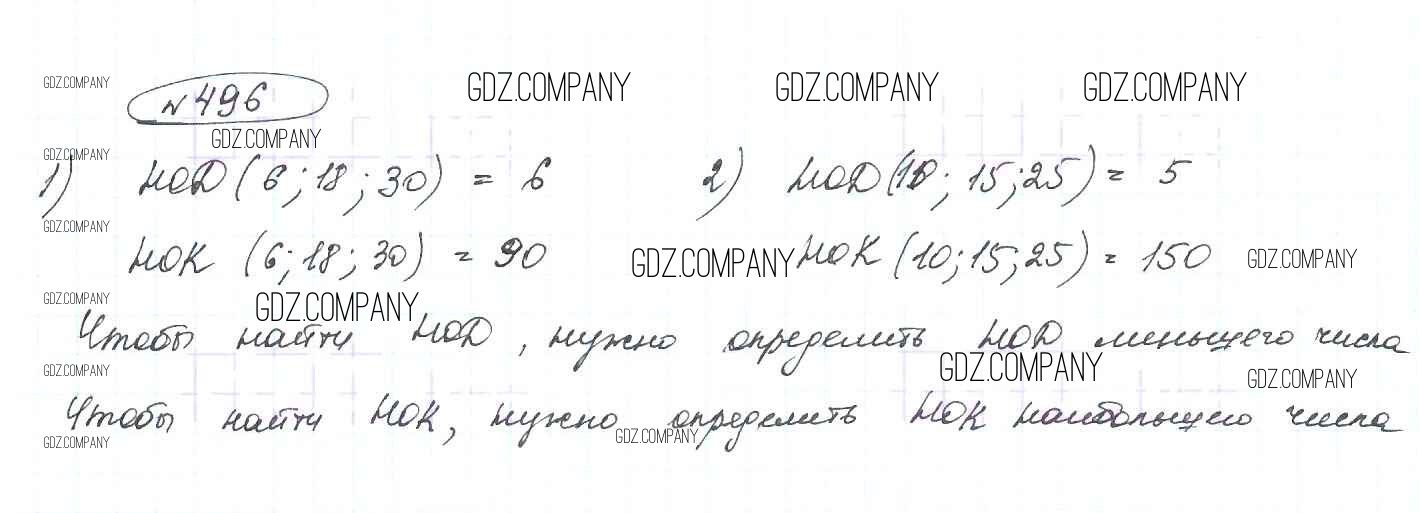 GDZ.COMPANY
№496
GDZ.COMPANY GDZ.COMPANY GDZ.COMPANY
GDZ.COMPANY
GDZ.COMPANY
1) НОД (6; 18; 30) = 6 2) НОД (10; 15; 25) = 5
GDZ.COMPANY
НОК (6; 18; 30) = 90 GDZ.COMPANY НОК (10; 15; 25) = 150 GDZ.COMPANY
GDZ.COMPANY GDZ.COMPANY
Чтобы найти НОД, нужно определить НОД меньшего числа
GDZ.COMPANY GDZ.COMPANY GDZ.COMPANY
Чтобы найти НОК, нужно определить НОК наибольшего числа
GDZ.COMPANY GDZ.COMPANY